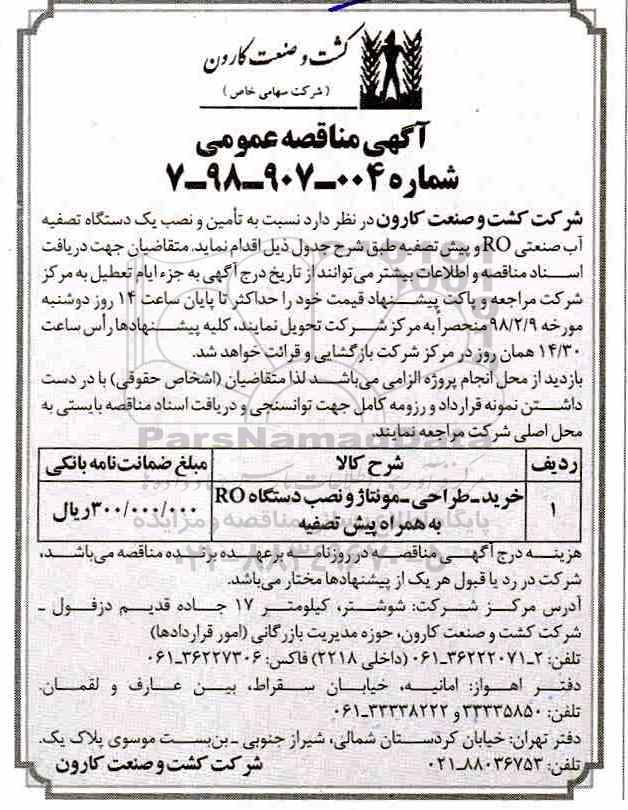 کشت و صنعت کارون
(شرکت سهامی خاص)
آگهی مناقصه عمومی
شماره ۰۰۴-۹۰۷-۹۸-۷
شرکت کشت و صنعت کارون در نظر دارد نسبت به تأمین و نصب یک دستگاه تصفیه
آب صنعتی RO و پیش تصفیه طبق شرح جدول ذیل اقدام نماید. متقاضیان جهت دریافت
اسناد مناقصه و اطلاعات بیشتر می‌توانند از تاریخ درج آگهی به جزء ایام تعطیل به مرکز
شرکت مراجعه و پاکت پیشنهاد قیمت خود را حداکثر تا پایان ساعت ۱۴ روز دوشنبه
مورخه ۹۸/۲/۹ منحصراً به مرکز شرکت تحویل نمایند، کلیه پیشنهادها رأس ساعت
۱۴/۳۰ همان روز در مرکز شرکت بازگشایی و قرائت خواهد شد.
بازدید از محل انجام پروژه الزامی می‌باشد لذا متقاضیان (اشخاص حقوقی) با در دست
داشتن نمونه قرارداد و رزومه کامل جهت توانسنجی و دریافت اسناد مناقصه بایستی به
محل اصلی شرکت مراجعه نمایند.
ردیف شرح کالا مبلغ ضمانت‌نامه بانکی
۱ خرید-طراحی-مونتاژ و نصب دستگاه RO ۳۰۰/۰۰۰/۰۰۰ریال
به همراه پیش تصفیه
هزینه درج آگهی مناقصه در روزنامه برعهده برنده مناقصه می‌باشد،
شرکت در رد یا قبول هر یک از پیشنهادها مختار می‌باشد.
آدرس مرکز شرکت: شوشتر، کیلومتر ۱۷ جاده قدیم دزفول -
شرکت کشت و صنعت کارون، حوزه مدیریت بازرگانی (امور قراردادها)
تلفن: ۲-۳۶۲۲۲۰۷۱-۰۶۱ (داخلی ۲۲۱۸) فاکس: ۳۶۲۲۷۳۰۶-۰۶۱
دفتر اهواز: امانیه، خیابان سقراط، بین عارف و لقمان.
تلفن: ۳۳۳۳۵۸۵۰ و ۳۳۳۳۸۲۲۲-۰۶۱
دفتر تهران: خیابان کردستان شمالی، شیراز جنوبی - بن‌بست موسوی پلاک یک.
تلفن: ۸۸۰۳۶۷۵۳-۰۲۱ شرکت کشت و صنعت کارون
ParsNamadData